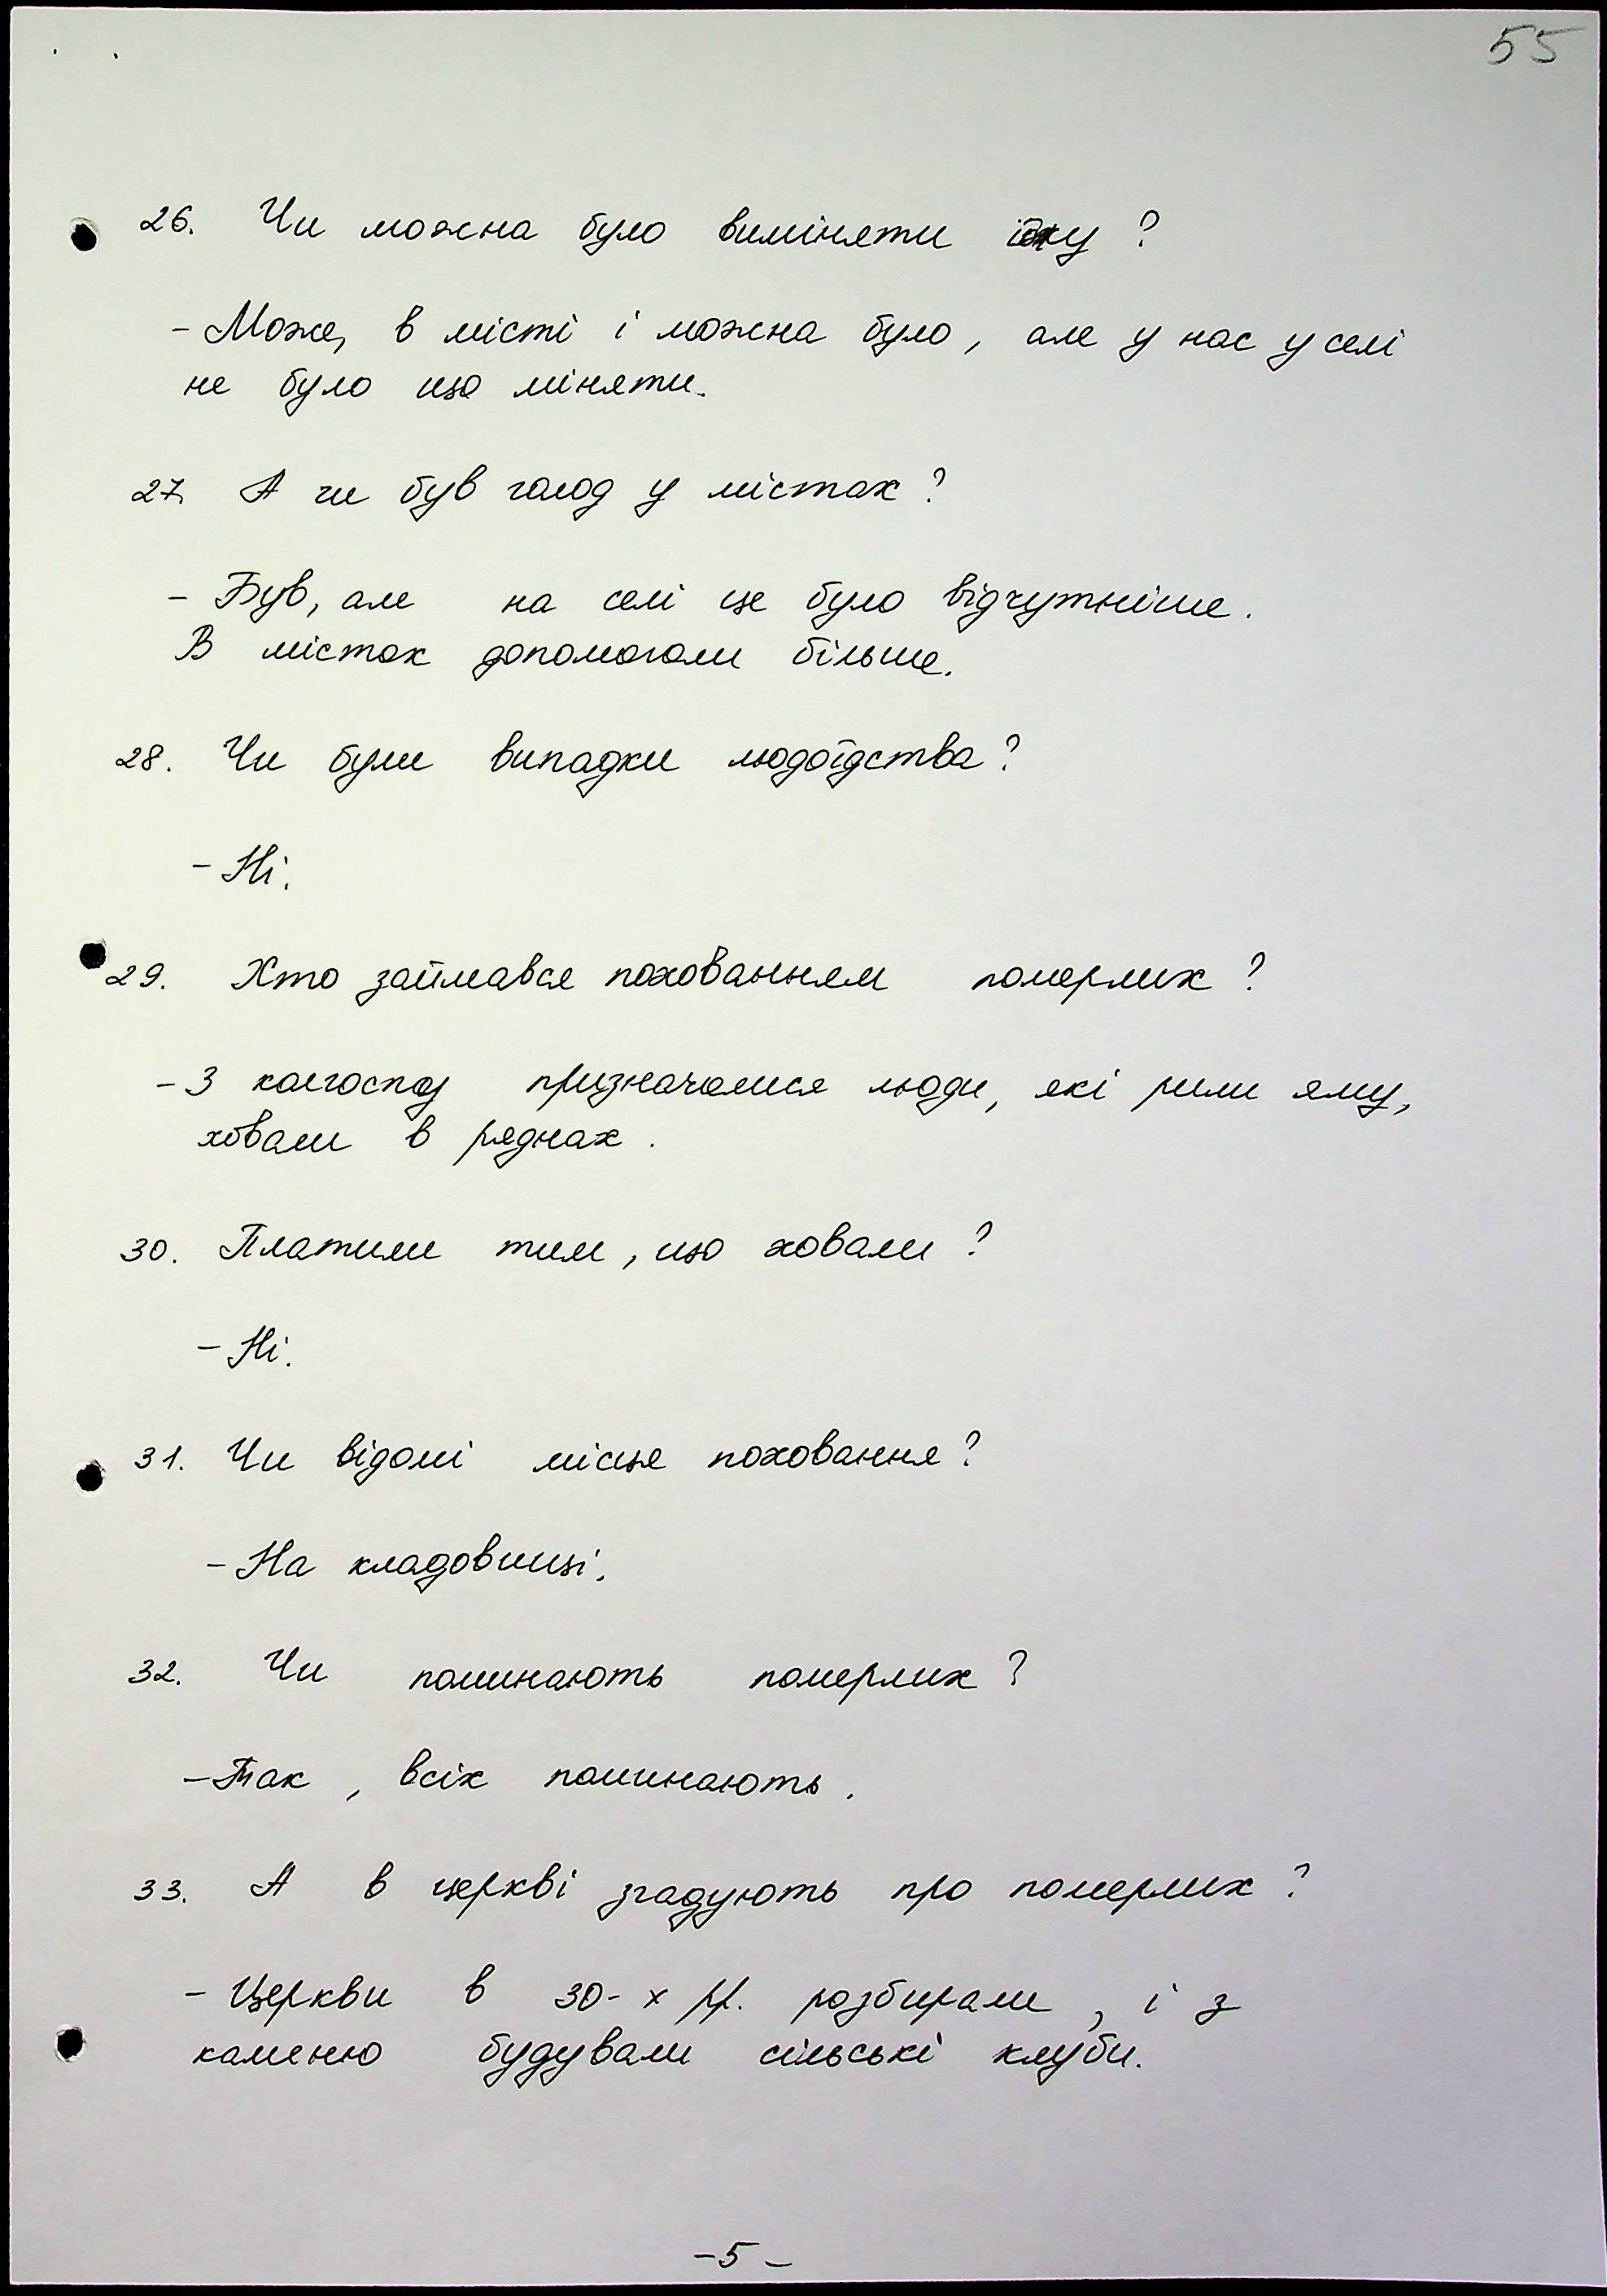 55
26. Чи можна було виміняти їжу ?
- Може, в місті і можна було, але у нас у селі
не було що міняти.
27. А чи був голод у містах ?
- Був, але на селі це було відчутніше.
В містах допомогали більше.
28. Чи були випадки людоїдства ?
- Ні.
29. Хто займався похованням померлих ?
- З колгоспу призначалися люди, які рили яму,
ховали в ряднах .
30. Платили тим, що ховали ?
- Ні.
31. Чи відомі місця поховання ?
- На кладовищі.
32. Чи поминають померлих ?
- Так , всіх поминають .
33. А в церкві згадують про померлих ?
- Церкви в 30-х рр. розбирали , і з
каменю будували сільські клуби.
- 5 -